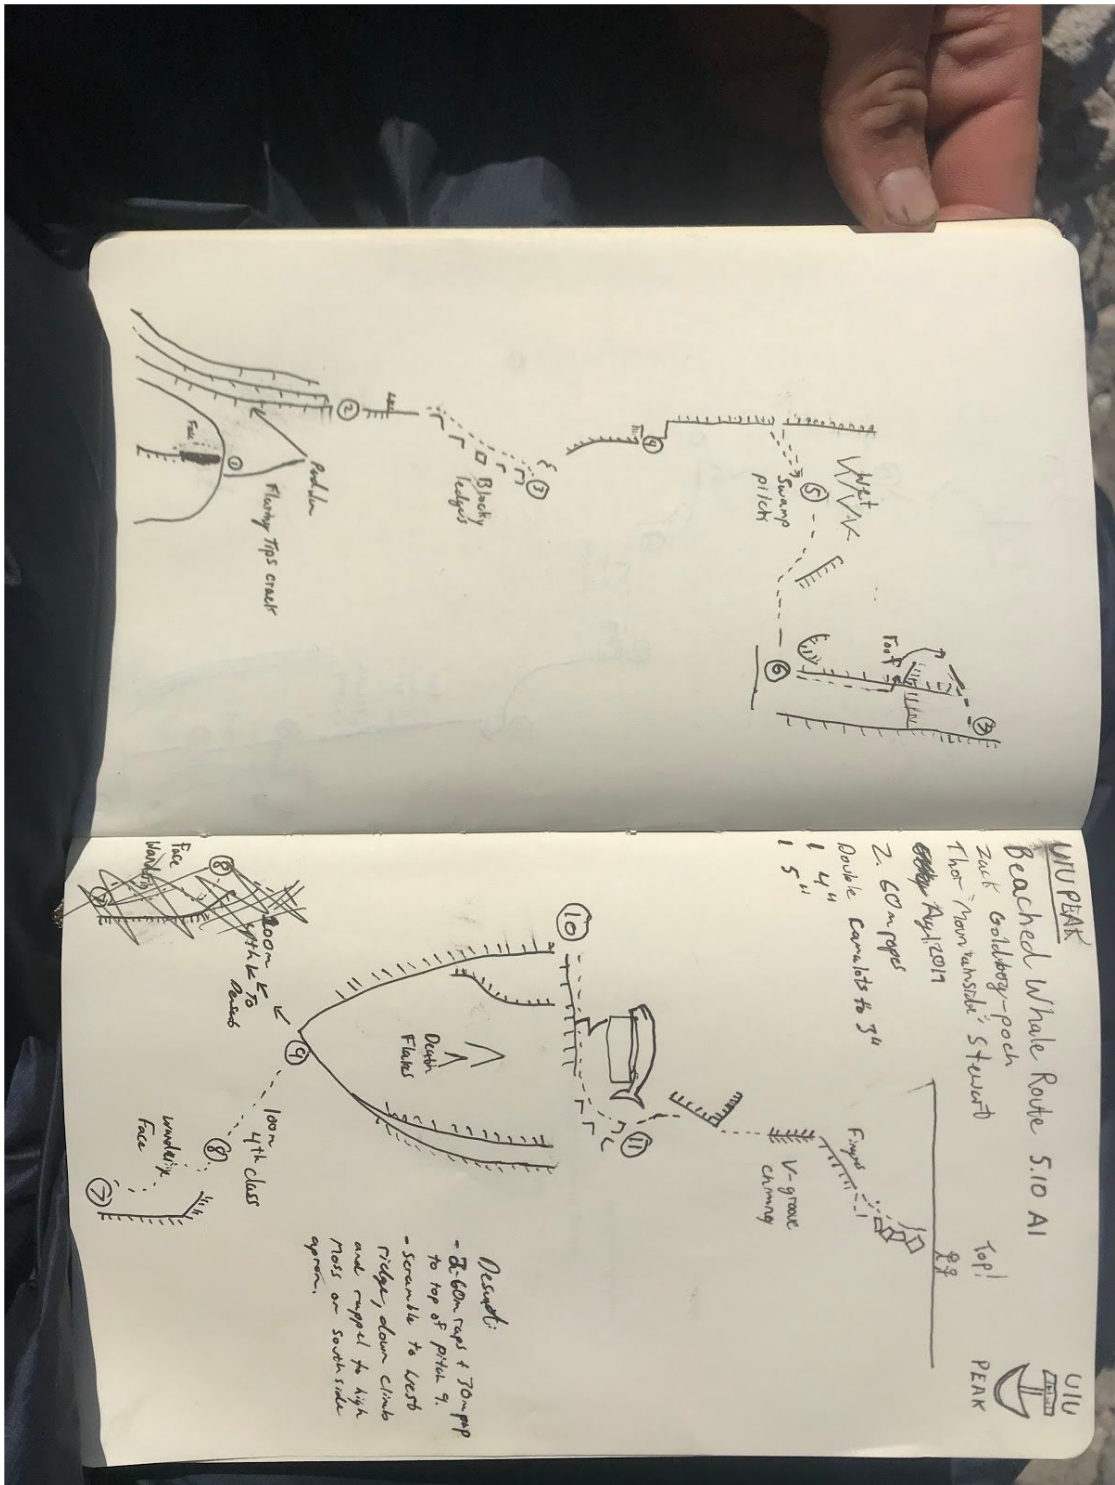 UIU PEAK
Beached Whale Route 5.10 A1
Zack Goldberg-Poch
Thor "Mountainside" Stewart
Aug/2017
2. 60m ropes
Double camalots to 3"
1 4"
1 5"
Top!
UIU
PEAK
Fingers
V-groove
chimney
11
10
Death
Flakes
9
200m
4th
To
Descent
100m
4th class
8
Wandering
Face
7
8
Face
Wandering
7
Descent:
- 2-60m raps + 30m rap
to top of pitch 9.
- scramble to west
ridge, down climb
and rappel to high
moss on south side
apron.
7
Roof
6
Wet
5
Swamp
pitch
4
3
Blocky
ledges
2
Pendulum
1
Flaring Tips crack